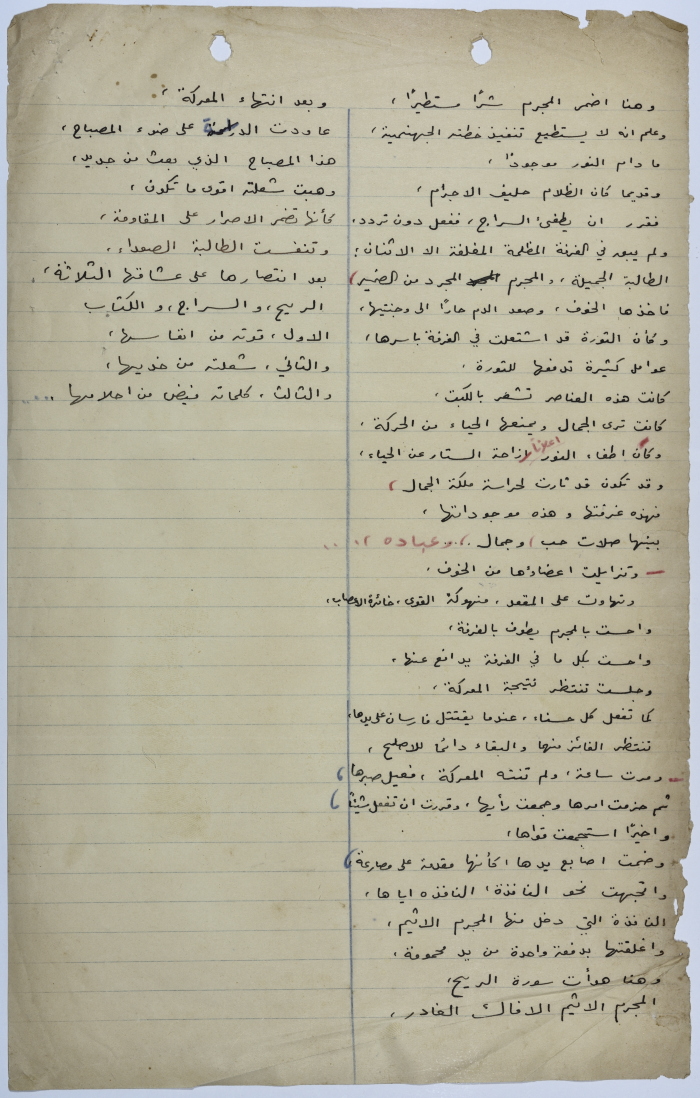 وهنا اضمر المجرم شرًا مستطيرًا ،
وعلم انه لا يستطيع تنفيذ خطته الجهنمية ،
ما دام النور موجودًا ،
وقديما كان الظلام حليف الاجرام ،
فقرر ان يطفئ السراج ، ففعل دون تردد ،
ولم يبق في الغرفة المظلمة المغلقة الا الاثنان ؛
الطالبة الجميلة ، والمجرم المجرد من الضمير ،
فاخذها الخوف ، وصعد الدم حارًا الى وجنتيها ،
وكأن الثورة قد اشتعلت في الغرفة باسرها ،
عوامل كثيرة تدفعها للثورة .
كانت هذه العناصر تشعر بالكبت ،
كانت ترى الجمال ويمنعها الحياء من الحركة ،
وكأن اطفاء النور اعلانًا لازاحة الستار عن الحياء ،
وقد تكون قد ثارت لحراسة ملكة الجمال ،
فهذه غرفتها وهذه موجوداتها ،
بينها صلات حب ، وجمال .. ، وعباده ، . ...
— وتزايلت اعضاؤها من الخوف ،
وتهاوت على المقعد ، منهوكة القوى ، خائرة الاعصاب ،
واحست بالمجرم يطوف بالغرفة ،
واحست بكل ما في الغرفة يدافع عنها ،
وجلست تنتظر نتيجة المعركة ،
كما تفعل كل حسناء ، عندما يقتتل فارسان على يدها ،
تنتظر الفائز منهما والبقاء دائمًا للاصلح ،
— ومرت ساعة ، ولم تنته المعركة ، فعيل صبرها ،
ثم حزمت امرها وجمعت رأيها ، وقررت ان تفعل شيئًا ،
واخيرًا استجمعت قواها ،
وضمت اصابع يدها كأنها مقدمة على مصارعة ،
واتجهت نحو النافذة ، النافذه اياها ،
النافذة التي دخل منها المجرم الاثيم ،
واغلقتها بدفعة واحدة من يد محمومة ،
وهنا هدأت سورة الريح ،
المجرم الاثيم الافاك الغادر ،
وبعد انتهاء المعركة ،
عاودت الدراسة على ضوء المصباح ،
هذا المصباح الذي بعث من جديد ،
وهبت شعلته اقوى ما تكون ،
كأنها تضمر الاصرار على المقاومة ،
وتنفست الطالبة الصعداء ،
بعد انتصارها على عشاقها الثلاثة ،
الريح ، والسراج ، و الكتاب
الاول ، قوته من انفاسها ،
والثاني ، شعلته من خديها ،
والثالث ، كلماته فيض من احلامها .....